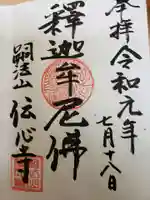 奉拝令和元年
七月十八日
釋迦牟尼佛
嗣法山
伝心寺